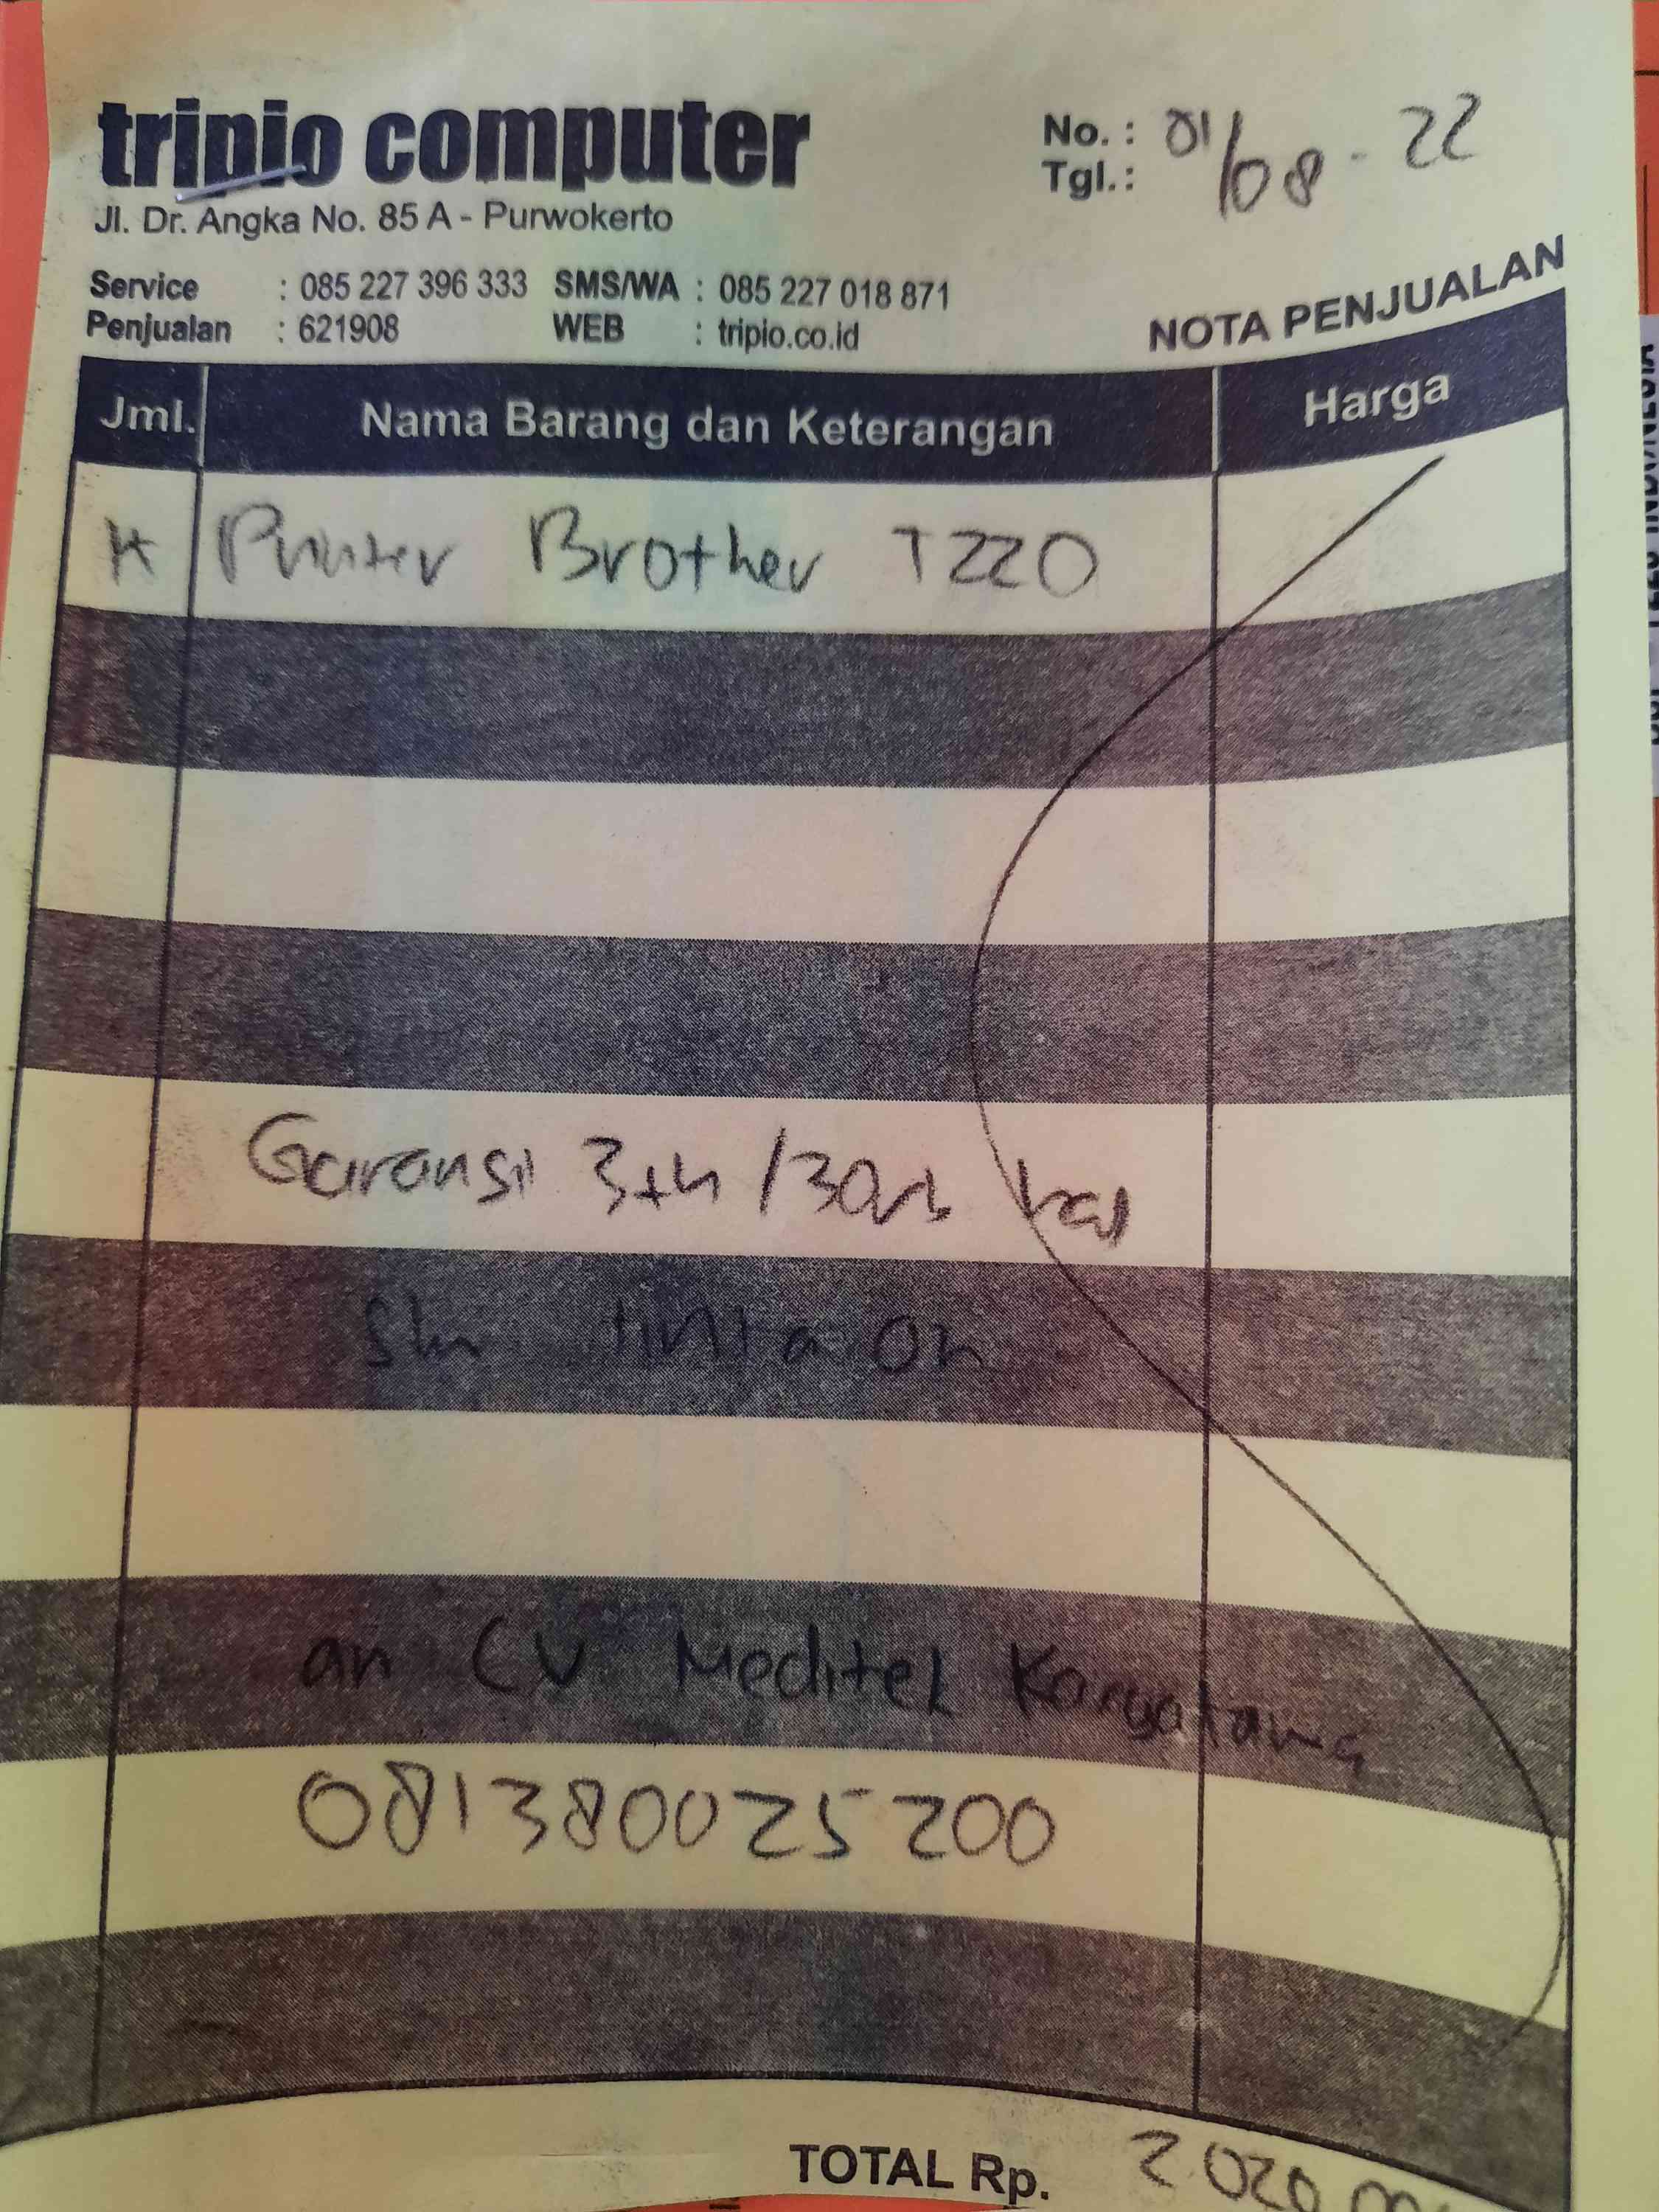 tripio computer
Jl. Dr. Angka No. 85 A - Purwokerto
No. :
Tgl. : 01/08-22
Service : 085 227 396 333 SMS/WA : 085 227 018 871
Penjualan : 621908 WEB : tripio.co.id
NOTA PENJUALAN
Jml. Nama Barang dan Keterangan Harga
Printer Brother T220
Garansi 3th /30rb
tinta on
an CV Meditek Karyatama
081380025200
TOTAL Rp. 2.020